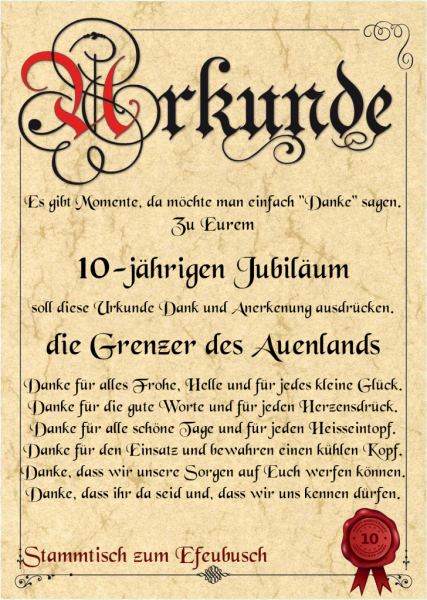 Urkunde
Es gibt Momente, da möchte man einfach "Danke" sagen.
Zu Eurem
10-jährigen Jubiläum
soll diese Urkunde Dank und Anerkenung ausdrücken.
die Grenzer des Auenlands
Danke für alles Frohe, Helle und für jedes kleine Glück.
Danke für die gute Worte und für jeden Herzensdrück.
Danke für alle schöne Tage und für jeden Heisseintopf.
Danke für den Einsatz und bewahren einen kühlen Kopf.
Danke, dass wir unsere Sorgen auf Euch werfen können.
Danke, dass ihr da seid und, dass wir uns kennen dürfen.
Stammtisch zum Efeubusch
10